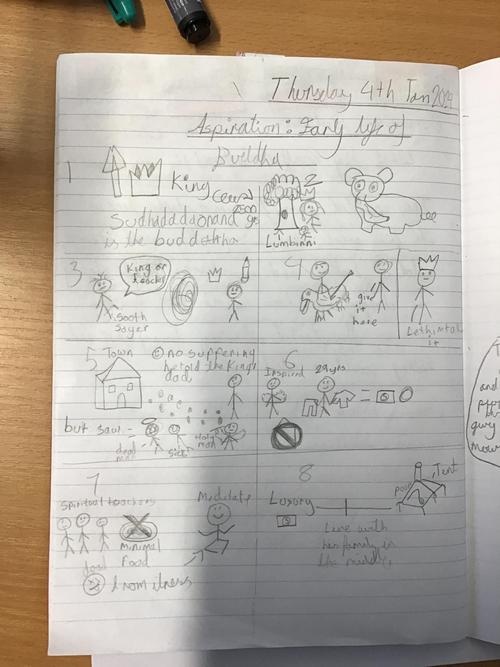 Thursday 4th Jan 2024
Aspiration: Early life of
Buddha
1
King
2
is the
Lumbinni
3
King or
teacher
sooth
sayer
4
give
it
here
Let him take
it
5 Town
no suffering
he told the King's
dad,
but saw -
dead
man
sick
Holy
man
6
Inspired 29 yrs
=
7
Spiritual teachers
Minimal
food
Meditate
from illness
8
Luxury
poor
Tent
Live with
his family in
the middle.
and